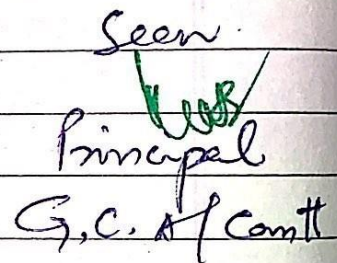 Seen.
Principal
G.C. A/Cantt